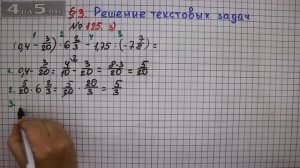 4
5
§3. Решение текстовых задач
№ 125. з)
1 2 4 3
(0,4 - 3/20) · 6 2/3 - 1,75 · (-7 7/8) =
1. 0,4 - 3/20 = 4/10 - 3/20 = 8-3/20 = 5/20
2. 5/20 · 6 2/3 = 5/20 · 20/3 = 5/3
3.